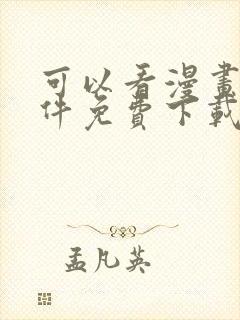 可以看漫畫
件免費下載
孟凡英